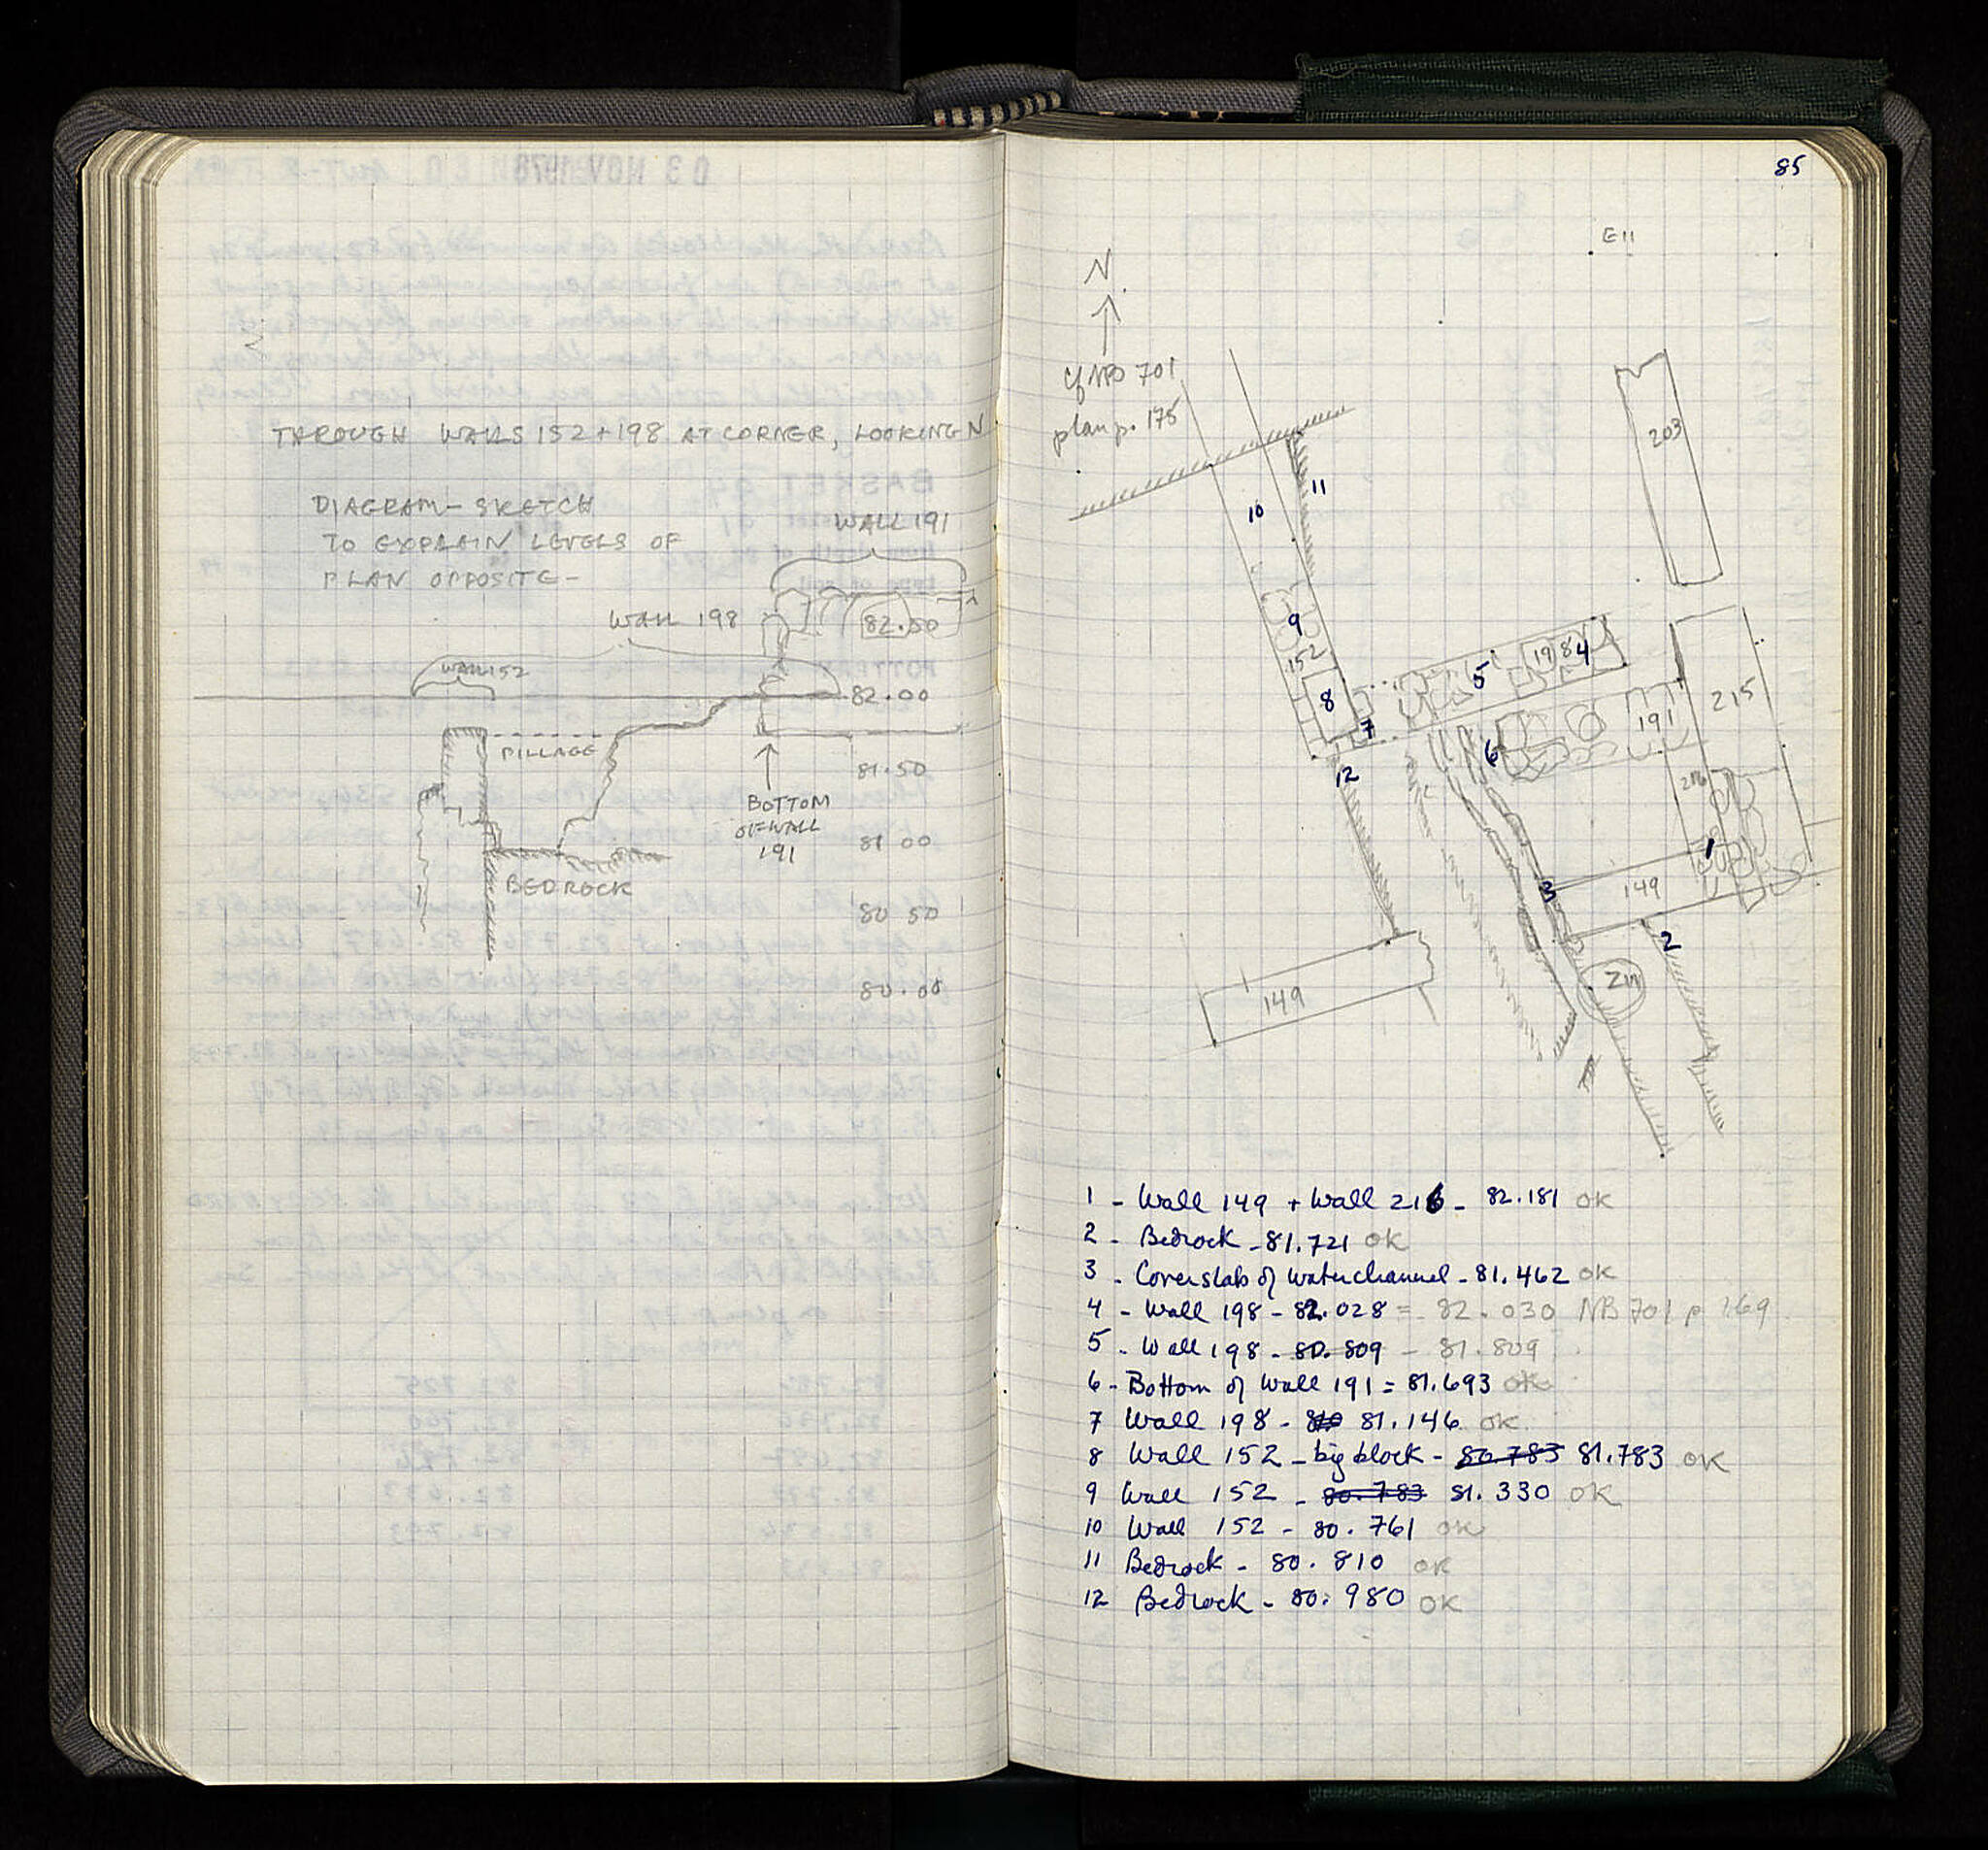 THROUGH WALLS 152 + 198 AT CORNER, LOOKING N
DIAGRAM - SKETCH
TO EXPLAIN LEVELS OF
PLAN OPPOSITE -
WALL 191
WALL 198
82.50
WALL 152
82.00
PILLAGE
81.50
BOTTOM
OF WALL
191
81 00
BEDROCK
80 50
80.00
85
E11
N
cf NB 701
plan p. 175
203
11
10
9
152
198
4
5
8
7
6
191
215
12
216
1
3
149
2
149
1 - Wall 149 + Wall 216 - 82.181 OK
2 - Bedrock - 81.721 OK
3 - Coverslab of waterchannel - 81.462 OK
4 - Wall 198 - 82.028 = 82.030 NB 701 p 169
5 - Wall 198 - 80.809 - 81.809
6 - Bottom of Wall 191 = 81.693 OK
7 Wall 198 - 80 81.146 OK
8 Wall 152 - big block - 80.783 81.783 OK
9 Wall 152 - 80.783 81.330 OK
10 Wall 152 - 80.761 OK
11 Bedrock - 80.810 OK
12 Bedrock - 80.980 OK